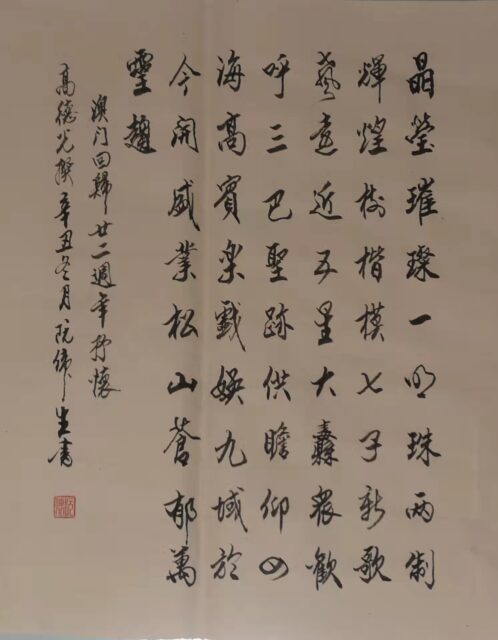 晶瑩璀璨一明珠兩制
輝煌樹楷模七子新歌
飄遠近五星大纛衆歡
呼三巴聖跡供瞻仰四
海高賓樂戲娛九域於
今開盛業松山蒼郁萬
靈趨
澳门回歸廿二週年抒懷
高德光撰辛丑冬月阮偉生書